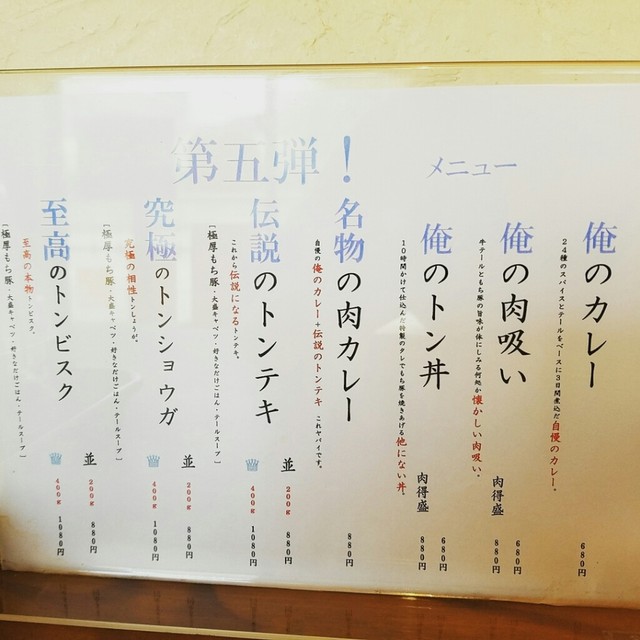 第五弾！
メニュー
俺のカレー
24種のスパイスとテールをベースに3日間煮込だ自慢のカレー。
680円
俺の肉吸い
牛テールともち豚の旨味が体にしみる何処か懐かしい肉吸い。
680円
肉得盛
880円
俺のトン丼
10時間かけて仕込んだ特製のタレでもち豚を焼きあげる他にない丼。
680円
肉得盛
880円
名物の肉カレー
自慢の俺のカレー+伝説のトンテキ これヤバイです。
880円
伝説のトンテキ
これから伝説になるトンテキ。
［極厚もち豚・大盛キャベツ・好きなだけごはん・テールスープ］
並 200g 880円
400g 1080円
究極のトンショウガ
究極の相性トンしょうが。
［極厚もち豚・大盛キャベツ・好きなだけごはん・テールスープ］
並 200g 880円
400g 1080円
至高のトンビスク
至高の本物トンビスク。
［極厚もち豚・大盛キャベツ・好きなだけごはん・テールスープ］
並 200g 880円
400g 1080円